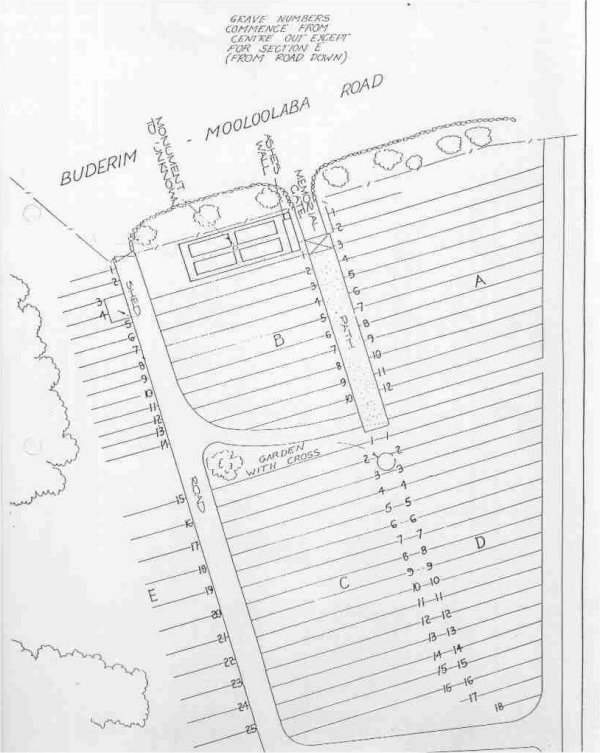 GRAVE NUMBERS
COMMENCE FROM
CENTRE OUT EXCEPT
FOR SECTION E
(FROM ROAD DOWN)
BUDERIM - MOOLOOLABA ROAD
MONUMENT
TO UNKNOWN
ASHES
WALL
MEMORIAL
GATE
SHED
PATH
ROAD
A
1
2
3
4
5
6
7
8
9
10
11
12
B
1
2
3
4
5
6
7
8
9
10
GARDEN
WITH CROSS
C
1
2
3
4
5
6
7
8
9
10
11
12
13
14
15
16
D
1
2
3
4
5
6
7
8
9
10
11
12
13
14
15
16
17
18
E
1
2
3
4
5
6
7
8
9
10
11
12
13
14
15
16
17
18
19
20
21
22
23
24
25